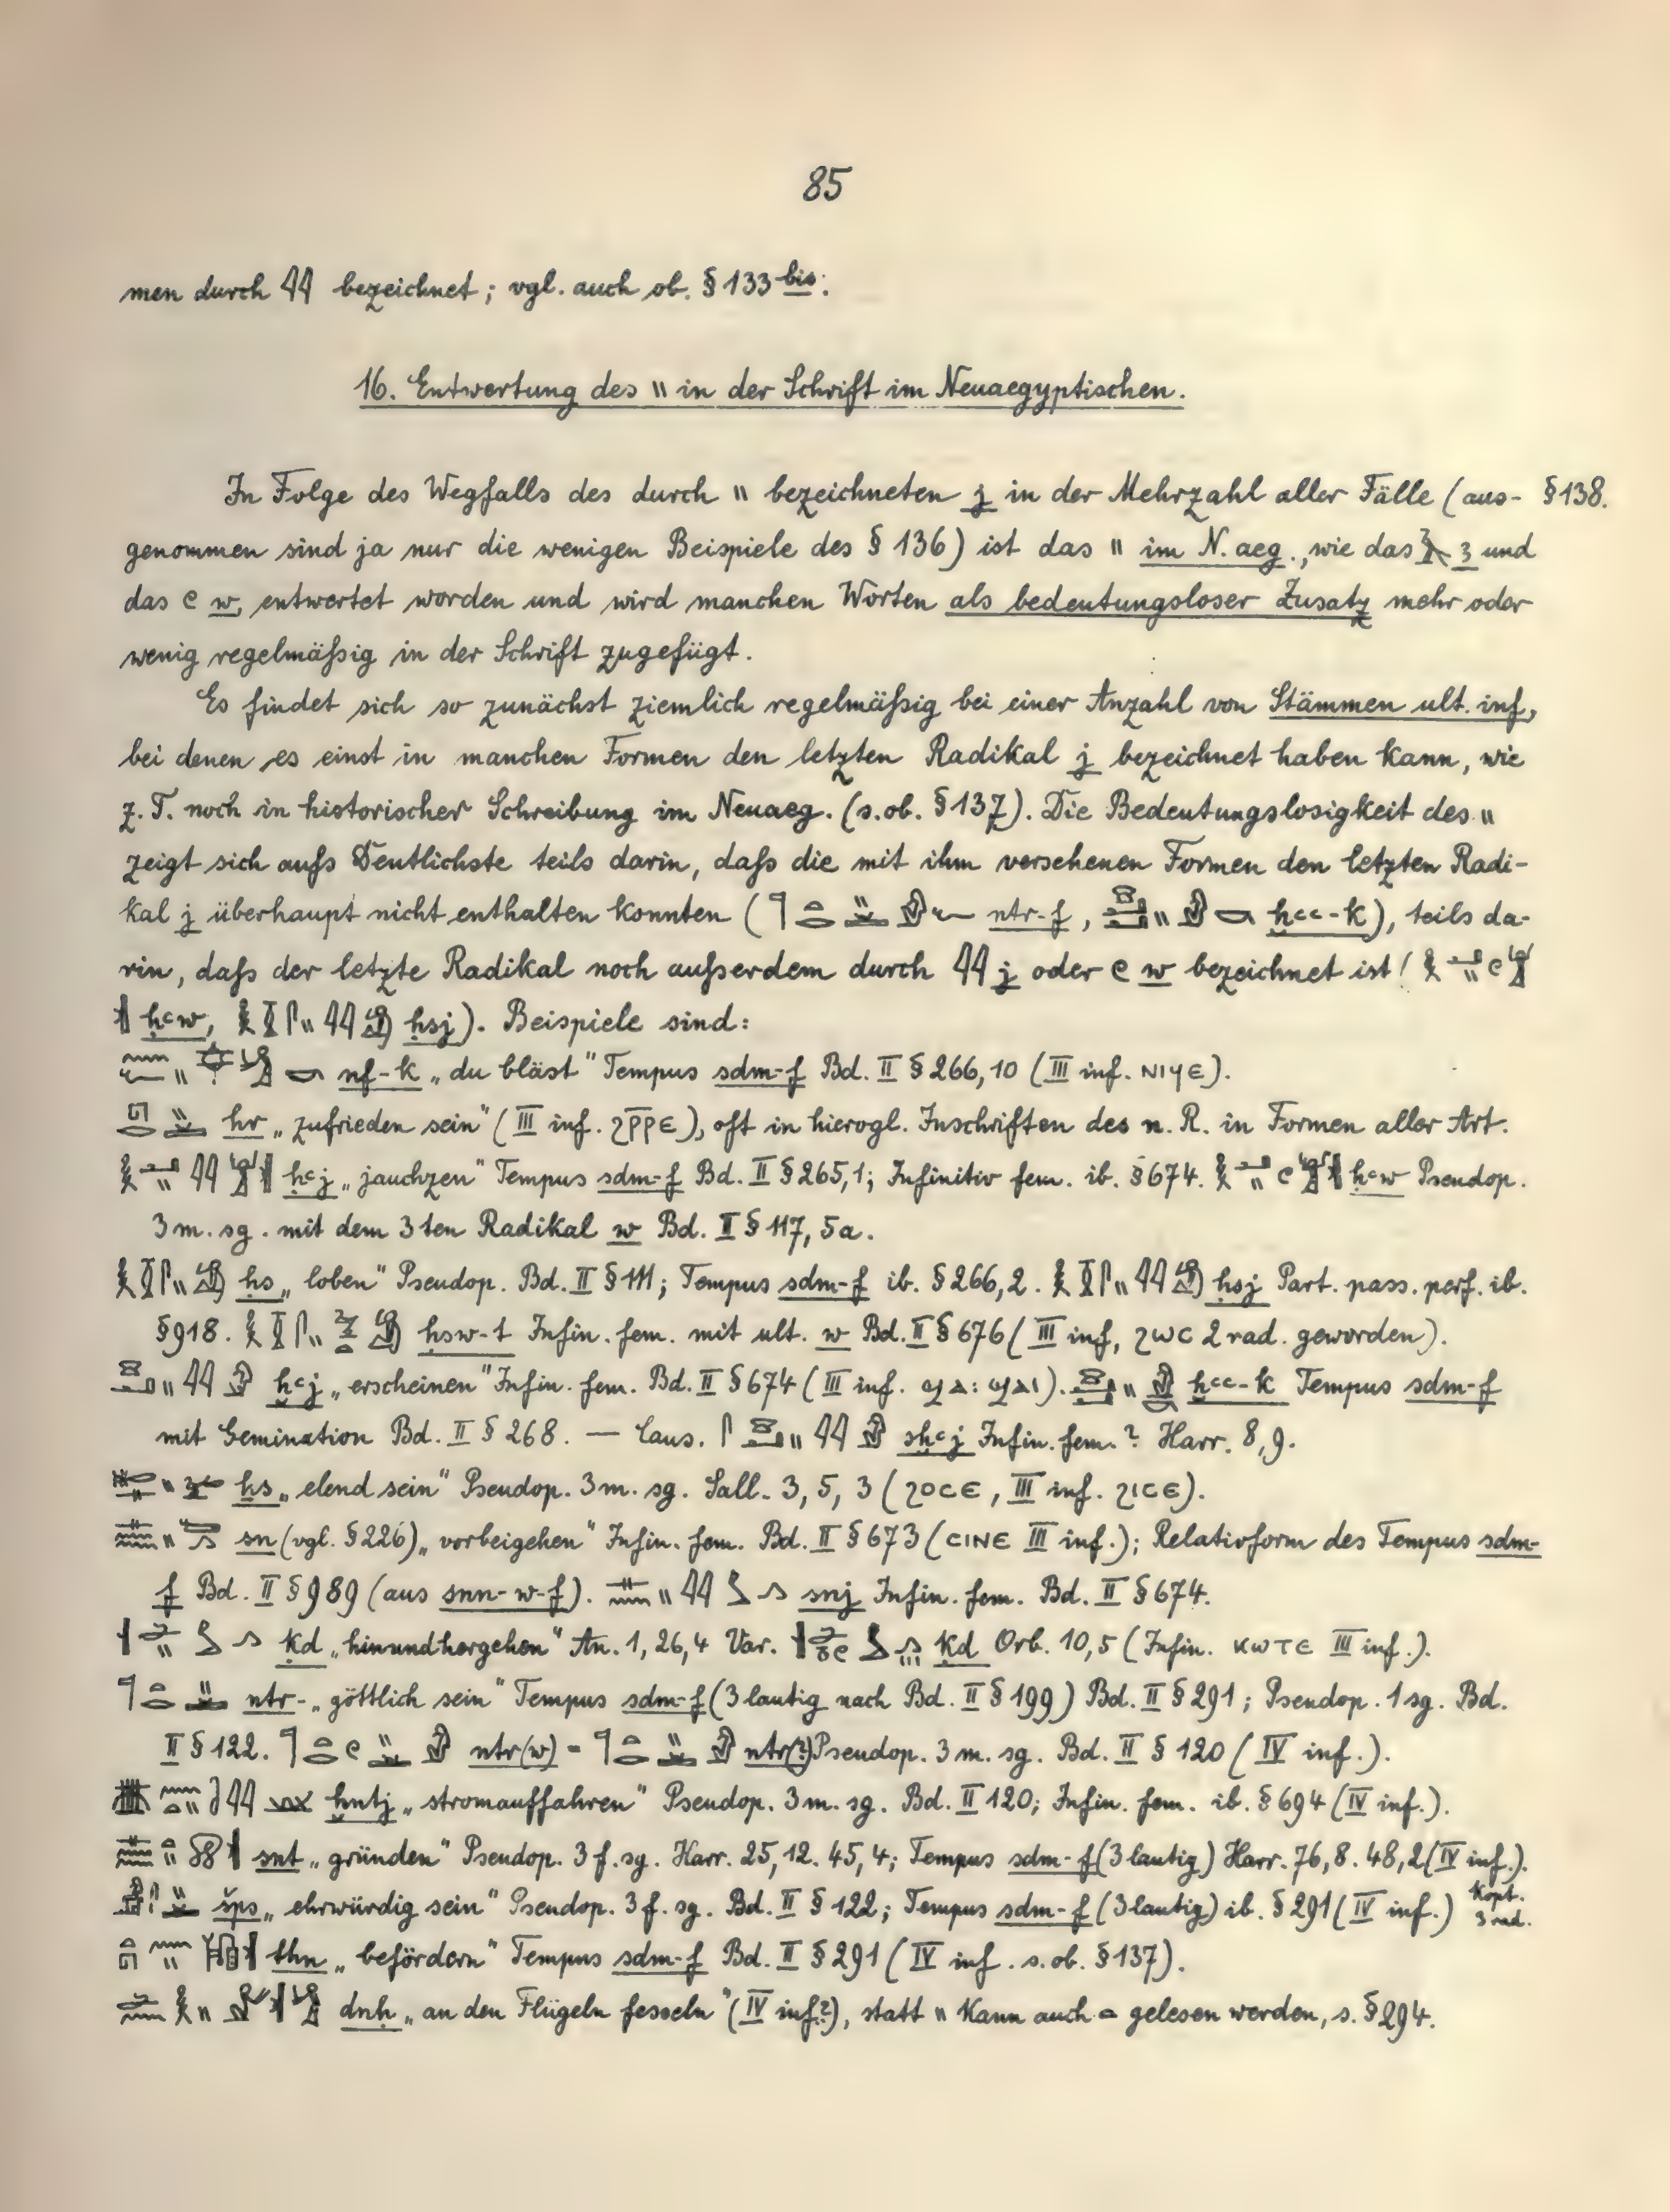 85
men durch 𓇌 bezeichnet; vgl. auch ob. § 133 bis.
16. Entwertung des 𓏭 in der Schrift im Neuaegyptischen.
In Folge des Wegfalls des durch 𓏭 bezeichneten j in der Mehrzahl aller Fälle (aus- § 138.
genommen sind ja nur die wenigen Beispiele des § 136) ist das 𓏭 im N. aeg., wie das 𓄿 ꜣ und
das 𓏲 w, entwertet worden und wird manchen Worten als bedeutungsloser Zusatz mehr oder
wenig regelmäßig in der Schrift zugefügt.
Es findet sich so zunächst ziemlich regelmäßig bei einer Anzahl von Stämmen ult. inf,
bei denen es einst in manchen Formen den letzten Radikal j bezeichnet haben kann, wie
z. T. noch in historischer Schreibung im Neuaeg. (s. ob. § 137). Die Bedeutungslosigkeit des 𓏭
zeigt sich aufs Deutlichste teils darin, daß die mit ihm versehenen Formen den letzten Radi-
kal j überhaupt nicht enthalten konnten ( nṯr-f, ḫꜥꜥ-k), teils da-
rin, daß der letzte Radikal noch außerdem durch 𓇌 j oder 𓏲 w bezeichnet ist (
ḥꜥw, ḥsj). Beispiele sind:
nf-k „du bläst" Tempus sdm-f Bd. II § 266, 10 (III inf. ⲛⲓϥⲉ).
hr „zufrieden sein" (III inf. ϩⲣ̅ⲣⲉ), oft in hierogl. Inschriften des n. R. in Formen aller Art.
ḥꜥj „jauchzen" Tempus sdm-f Bd. II § 265, 1; Infinitiv fem. ib. § 674. ḥꜥw Pseudop.
3 m. sg. mit dem 3ten Radikal w Bd. II § 117, 5a.
ḥs „loben" Pseudop. Bd. II § 111; Tempus sdm-f ib. § 266, 2. ḥsj Part. pass. perf. ib.
§ 918. ḥsw-t Infin. fem. mit ult. w Bd. II § 676 (III inf, ϩⲱⲥ 2 rad. geworden).
ḫꜥj „erscheinen" Infin. fem. Bd. II § 674 (III inf. ϣⲁ: ϣⲁⲓ). ḫꜥꜥ-k Tempus sdm-f
mit Gemination Bd. II § 268. — Caus. sḫꜥj Infin. fem.? Harr. 8, 9.
ẖs „elend sein" Pseudop. 3 m. sg. Sall. 3, 5, 3 (ϩⲟⲥⲉ, III inf. ϩⲓⲥⲉ).
sn (vgl. § 226) „vorbeigehen" Infin. fem. Bd. II § 673 (ⲥⲓⲛⲉ III inf.); Relativform des Tempus sdm-
f Bd. II § 989 (aus snn-w-f). snj Infin. fem. Bd. II § 674.
ḳd „hinundhergehen" An. 1, 26, 4 Var. ḳd Orb. 10, 5 (Infin. ⲕⲱⲧⲉ III inf.).
nṯr- „göttlich sein" Tempus sdm-f (3 lautig nach Bd. II § 199) Bd. II § 291; Pseudop. 1 sg. Bd.
II § 122. nṯr(w) = nṯr(?) Pseudop. 3 m. sg. Bd. II § 120 (IV inf.).
ḫntj „stromauffahren" Pseudop. 3 m. sg. Bd. II 120; Infin. fem. ib. § 694 (IV inf.).
snt „gründen" Pseudop. 3 f. sg. Harr. 25, 12. 45, 4; Tempus sdm-f (3 lautig) Harr. 76, 8. 48, 2 (IV inf.).
šps „ehrwürdig sein" Pseudop. 3 f. sg. Bd. II § 122; Tempus sdm-f (3 lautig) ib. § 291 (IV inf.) Kopt. 3 rad.
thn „befördern" Tempus sdm-f Bd. II § 291 (IV inf. s. ob. § 137).
dnḥ „an den Flügeln fesseln" (IV inf?), statt 𓏭 kann auch 𓏏 gelesen werden, s. § 294.